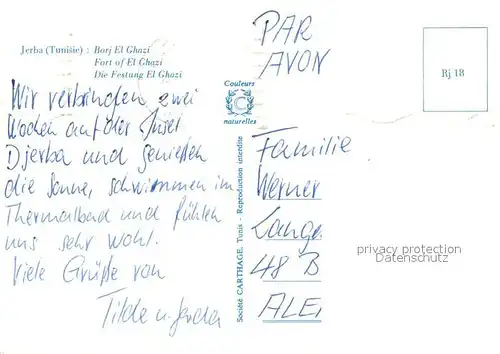 Jerba (Tunisie) : Borj El Ghazi
Fort of El Ghazi
Die Festung El Ghazi
Wir verbrinden zwei
Wochen auf der Insel
Djerba und genießen
die Sonne, schwimmen im
Thermalbad und fühlen
uns sehr wohl.
Viele Grüße von
Tilde u. Gerda
Couleurs
C
naturelles
Société CARTHAGE, Tunis - Reproduction interdite
PAR
AVON
Rj 18
Familie
Werner
Lange
48 B
ALE
privacy protection
Datenschutz